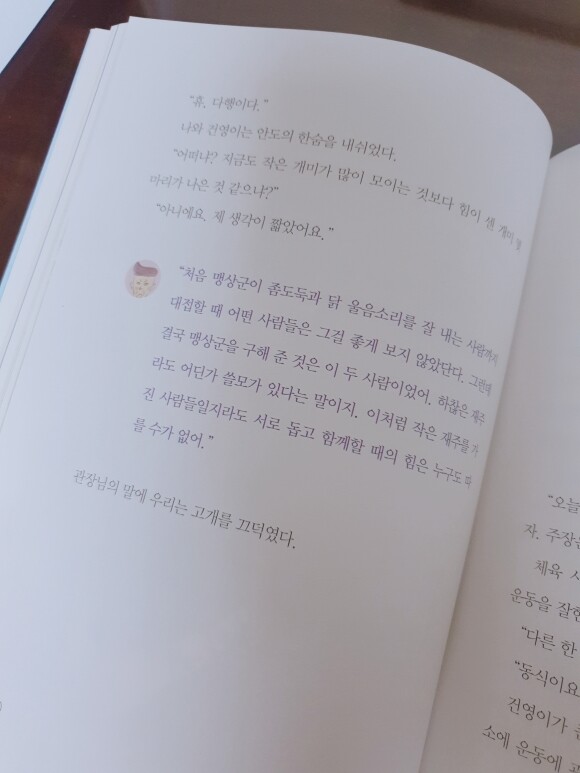 "휴, 다행이다."
나와 건영이는 안도의 한숨을 내쉬었다.
"어떠냐? 지금도 작은 개미가 많이 모이는 것보다 힘이 센 개미 몇
마리가 나은 것 같으냐?"
"아니에요. 제 생각이 짧았어요."
"처음 맹상군이 좀도둑과 닭 울음소리를 잘 내는 사람까지
대접할 때 어떤 사람들은 그걸 좋게 보지 않았단다. 그런데
결국 맹상군을 구해 준 것은 이 두 사람이었어. 하찮은 재주
라도 어딘가 쓸모가 있다는 말이지. 이처럼 작은 재주를 가
진 사람들일지라도 서로 돕고 함께할 때의 힘은 누구도 따
를 수가 없어."
관장님의 말에 우리는 고개를 끄덕였다.
"오늘
자. 주장은
체육 시
운동을 잘한
"다른 한
"동식이요
건영이가 큰
소에 운동에